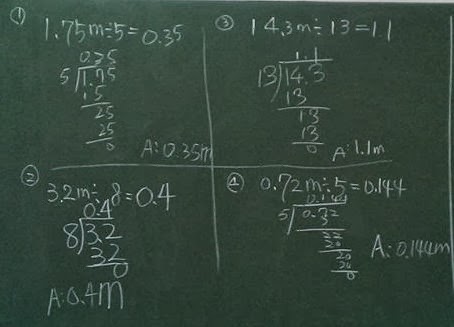 ①
1.75m÷5=0.35
0.35
5 1.75
1.5
25
25
0
A:0.35m
②
3.2m÷8=0.4
0.4
8 3.2
32
0
A:0.4m
③
14.3m÷13=1.1
1.1
13 14.3
13
13
13
0
A:1.1m
④
0.72m÷5=0.144
0.144
5
22
20
20
20
0
A:0.144m